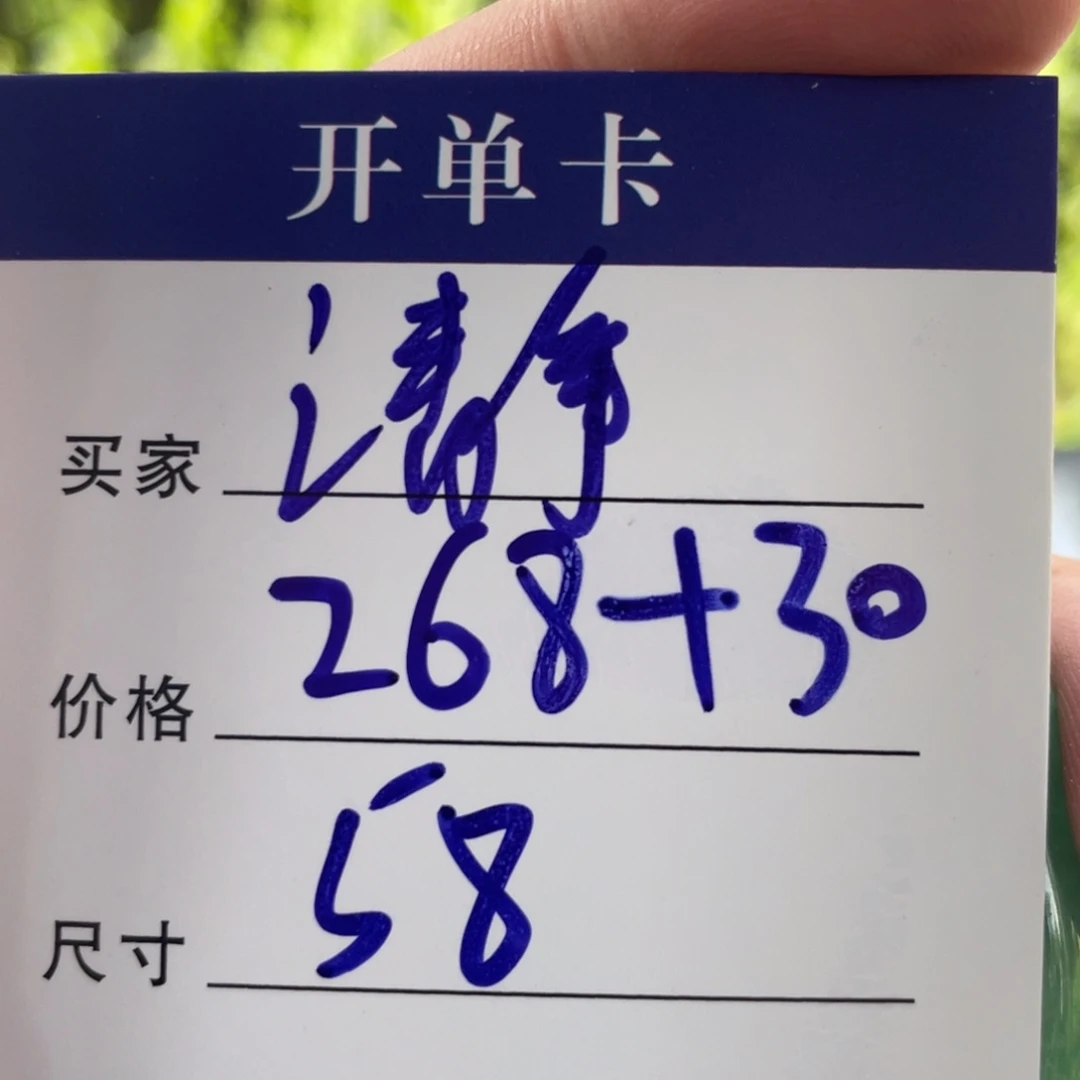 开单卡
买家 瀞
价格 268+30
尺寸 58